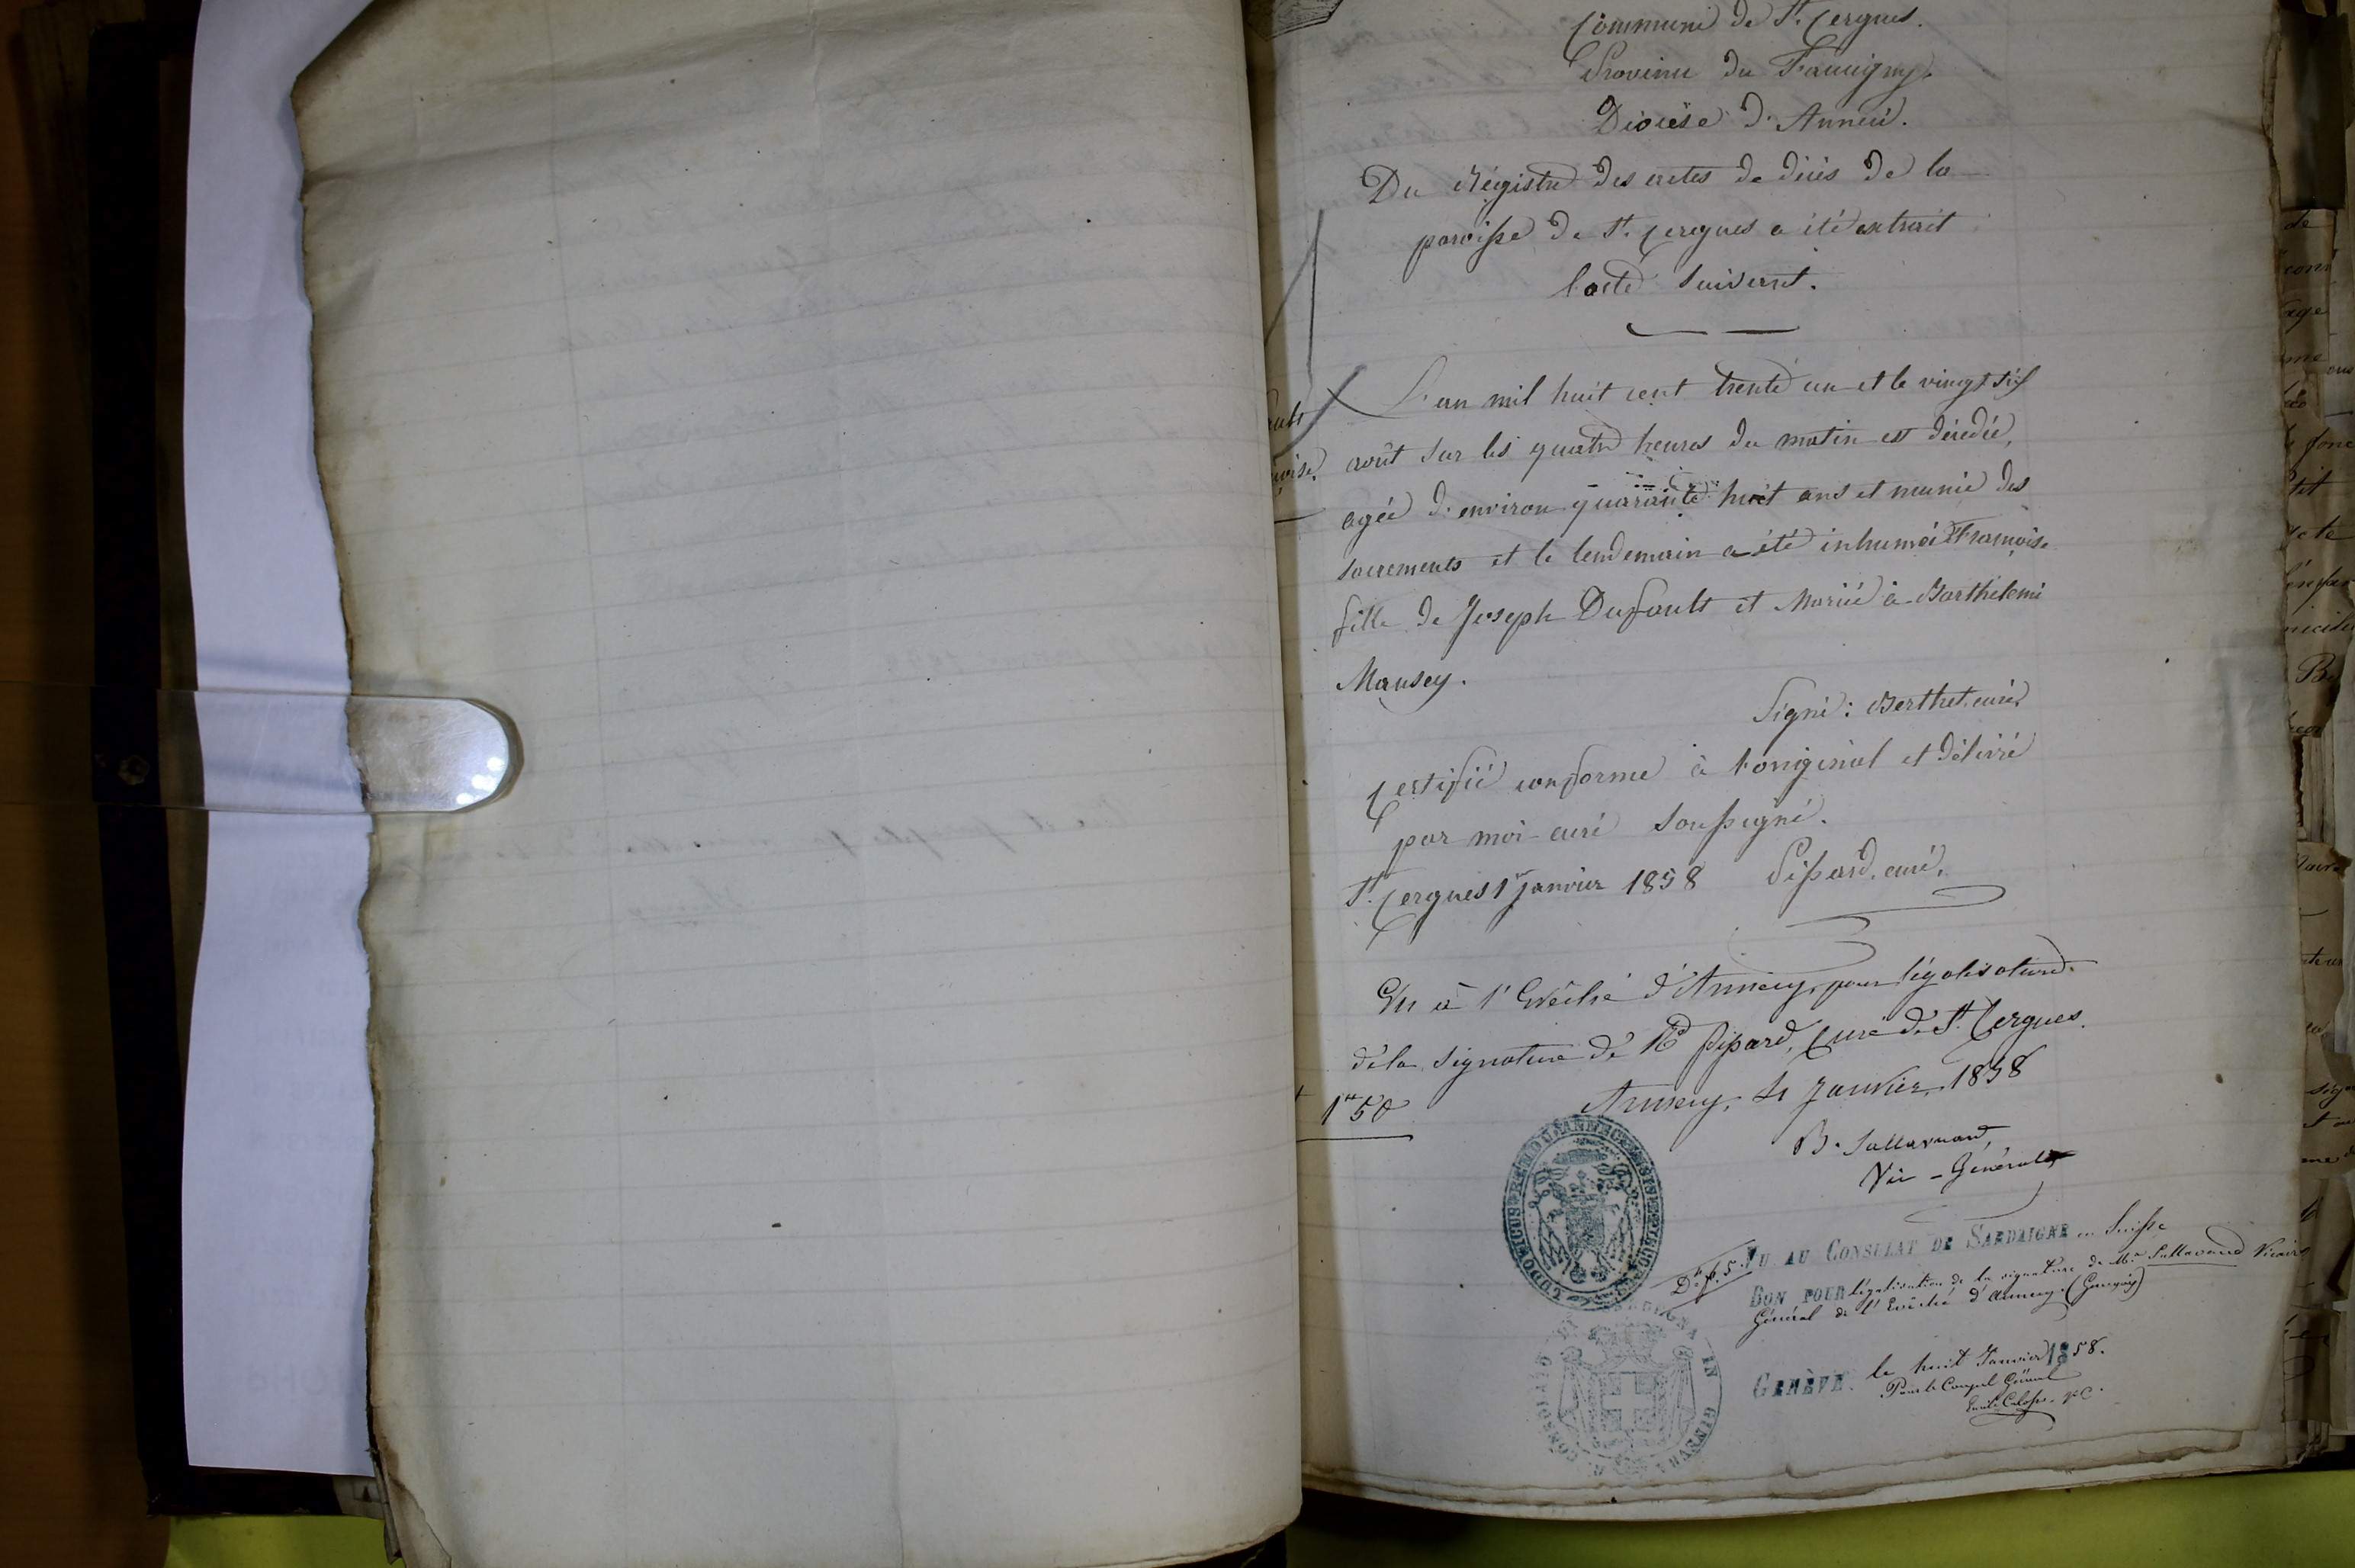 Commune de St. Cergues.
Province du Faucigny.
Diocèse d'Anneci.
Du Régistre des actes de décès de la
paroisse de St. Cergues a été extrait
l'acte suivant.
L'an mil huit cent trente un et le vingt six
août sur les quatre heures du matin est décédée,
agée d'environ quarante huit ans et munie des
sacrements et le lendemain a été inhumée Françoise
fille de Joseph Dufoult et Mariée à Barthélemi
Mansey.
Signé: Berthet, curé
Certifié conforme à l'original et délivré
par moi curé soussigné.
St. Cergues 1er janvier 1858 Pissard, curé,
Vu à l'Evêché d'Annecy, pour légalisation
de la signature de Rd Pissard, Curé de St. Cergues.
Annecy, 4 Janvier 1858
1 50
B. Sallavuard,
Vic-Général
VU AU CONSULAT DE SARDAIGNE en Suisse
BON POUR légalisation de la signature de Mr. Sallavuard Vicaire
Général de l'Evêché d'Annecy. (Genevois)
GENÈVE. le huit Janvier 1858.
Pour le Consul Général
CONSOLATO
SARDEGNA IN
GINEVRA